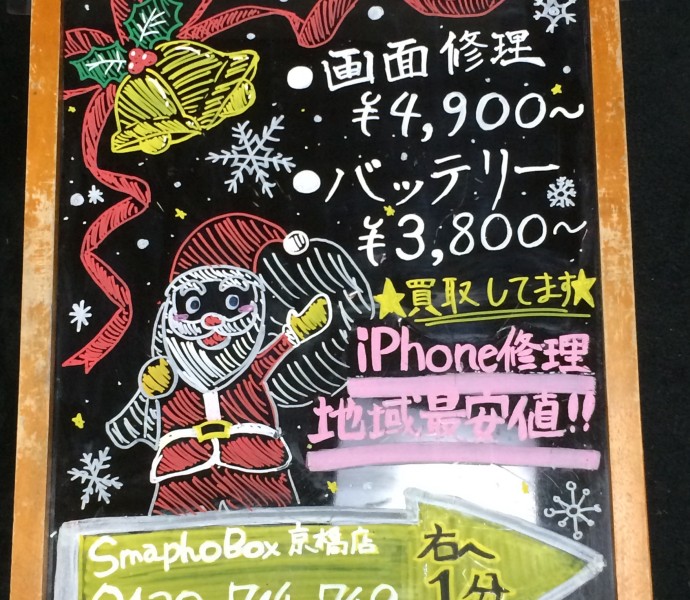 ●画面修理
¥4,900~
●バッテリー
¥3,800~
★買取してます★
iPhone修理
地域最安値!!
SmaphoBox 京橋店
右へ
1分